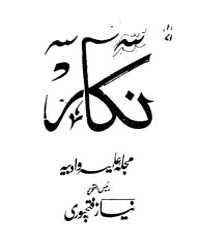 نگار
مجلہ علمیہ و ادبیہ
رئیس التحریر
نیاز فتحپوری